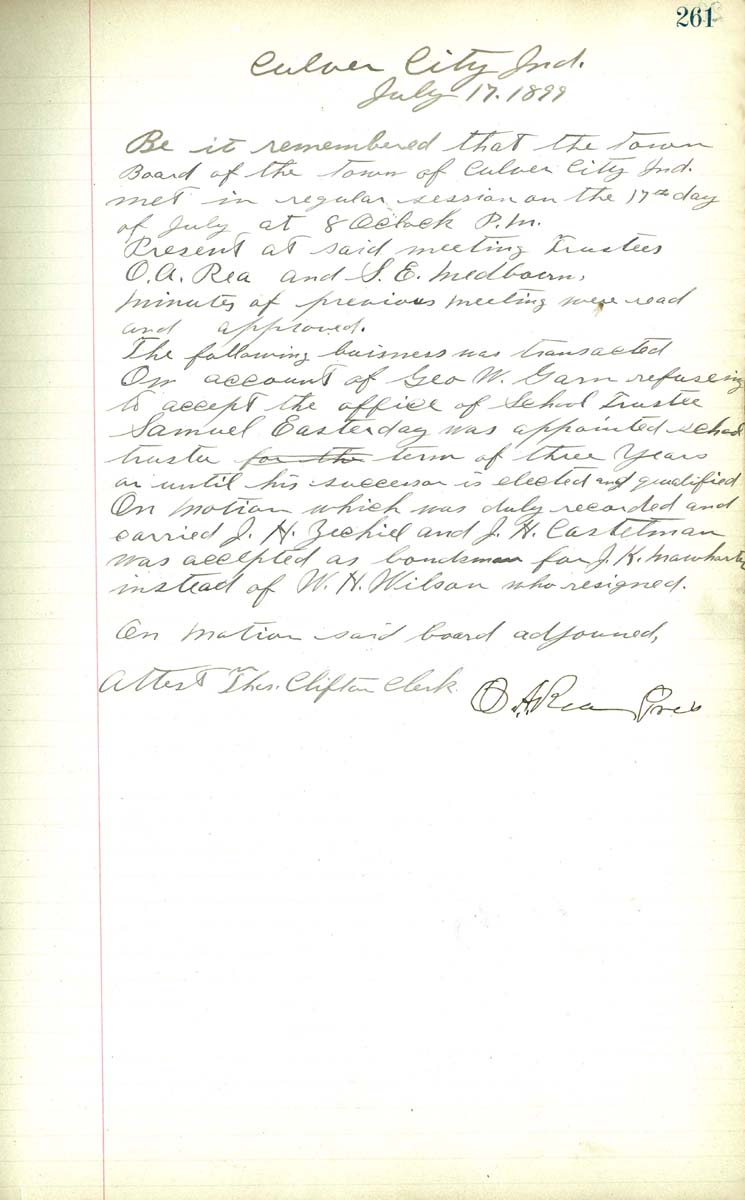 261
Culver City Ind.
July 17. 1899
Be it remembered that the town
Board of the town of Culver City Ind.
met in regular session on the 17th day
of July at 8 Oclock P.M.
Present at said meeting Trustees
O.A. Rea and S. E. Medbourn,
minutes of previous meeting were read
and approved.
The following buisness was transacted
On account of Geo W. Garn refuseing
to accept the office of School Trustee
Samuel Easterday was appointed school
trustee for the term of three Years
or until his successor is elected and qualified
On motion which was duly recorded and
carried J. H. Zechiel and J. H. Castelman
was accepted as bondsman for J. K. Mawhorter
instead of W. H. Wilson who resigned.
On motion said board adjouned,
Attest Thos. Clifton Clerk.
O. A. Rea Pres